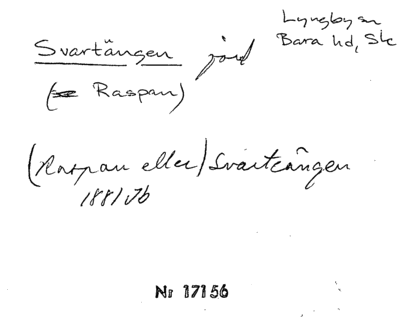 Svartängen jord
Lyngby sn
Bara hd, Sk
(Raspan)
(Raspan eller) Svartängen
1881 Jb
Nr 17156